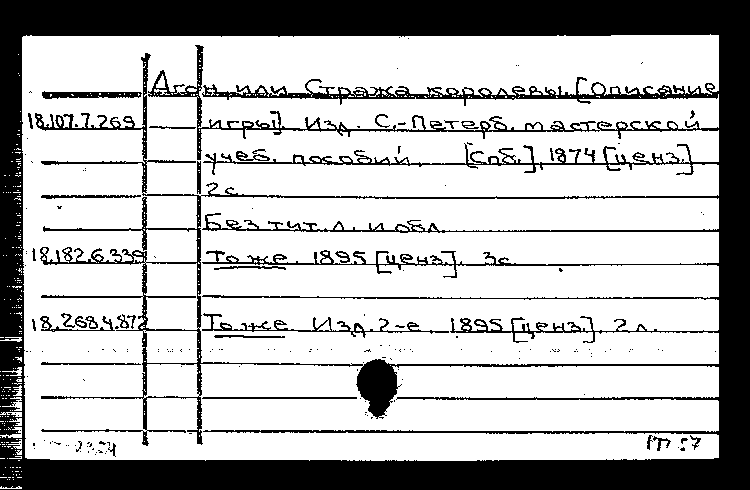 Агон, или Стража королевы. [Описание
18.107.7.269 игры]. Изд. С.-Петерб. мастерской
учеб. пособий. [Спб.], 1874 [ценз.]
2 с.
Без тит. л. и обл.
18.182.6.339 То же. 1895 [ценз.]. 3 с.
18.268.4.872 То же. Изд. 2-е. 1895 [ценз.]. 2 л.
57